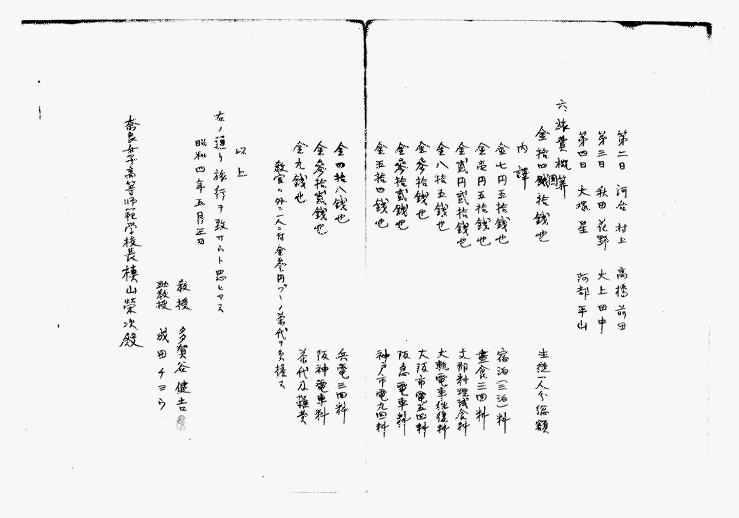 第二日 河合 村上 高橋 前田
第三日 秋田 花野 大上 田中
第四日 大塚 星 阿部 平山
六、旅費概算
金拾四円拾銭也 生徒一人分総額
内譯
金七円五拾銭也 宿泊(三泊)料
金壱円五拾銭也 昼食三回料
金貳円貳拾銭也 支那料理試食料
金八拾五銭也 大軌電車往復料
金参拾銭也 大阪市電五回料
金参拾貳銭也 阪急電車料
金五拾四銭也 神戸市電九回料
金四拾八銭也 兵電三回料
金参拾貳銭也 阪神電車料
金九銭也 茶代及雑費
教官ハ外ニ一人ニ付金参円ヅーノ茶代ヲ負擔ス
以上
右ノ通り旅行ヲ致サウト思ヒマス
昭和四年五月三日
教授 多賀谷健吉
助教授 成田チヨウ
奈良女子高等師範学校長 槇山榮次殿